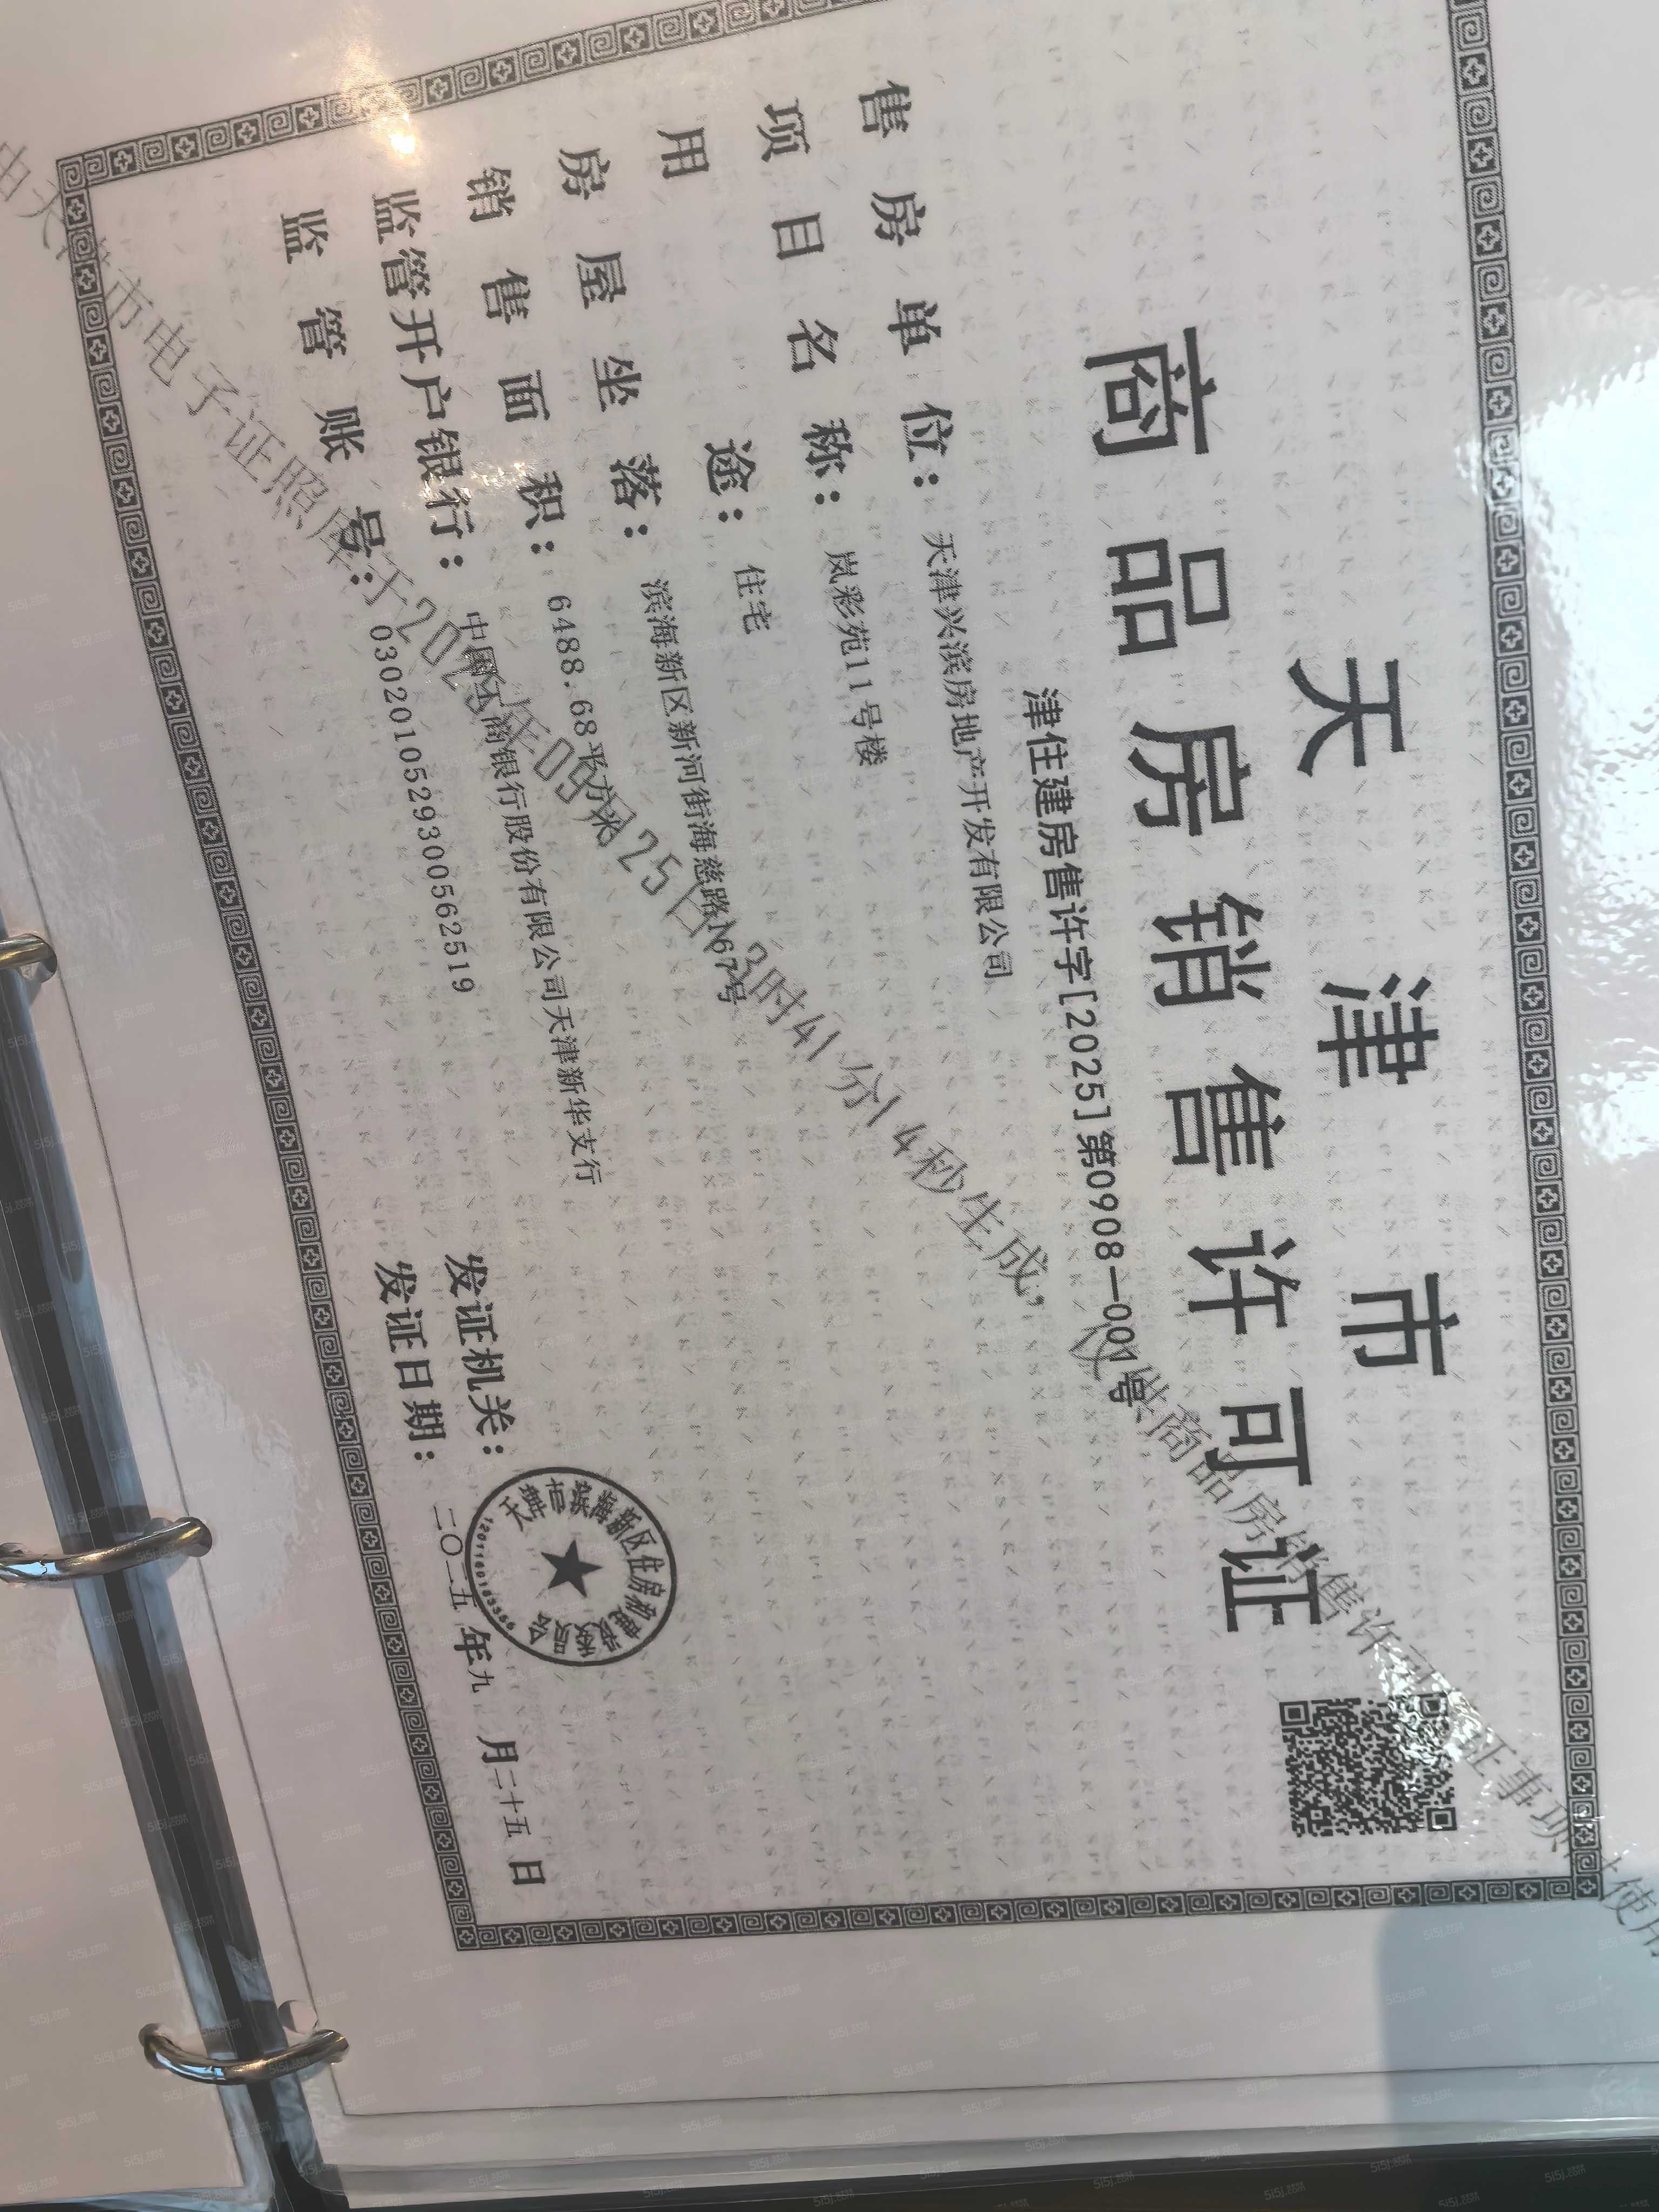 天津市
商品房销售许可证
津住建房售许字[2025]第0908—001号
售房单位：天津兴滨房地产开发有限公司
项目名称：岚彩苑11号楼
用途：住宅
房屋坐落：滨海新区新河街海慈路167号
销售面积：6488.68平方米
监管开户银行：中国工商银行股份有限公司天津新华支行
监管账号：0302010529300562519
发证机关：
发证日期：二〇二五年九月二十五日
天津市滨海新区住房和建设委员会
市电子证照库于2025年09月25日13时41分14秒生成，仅供商品房销售许可证事项 使用
5i5j.com